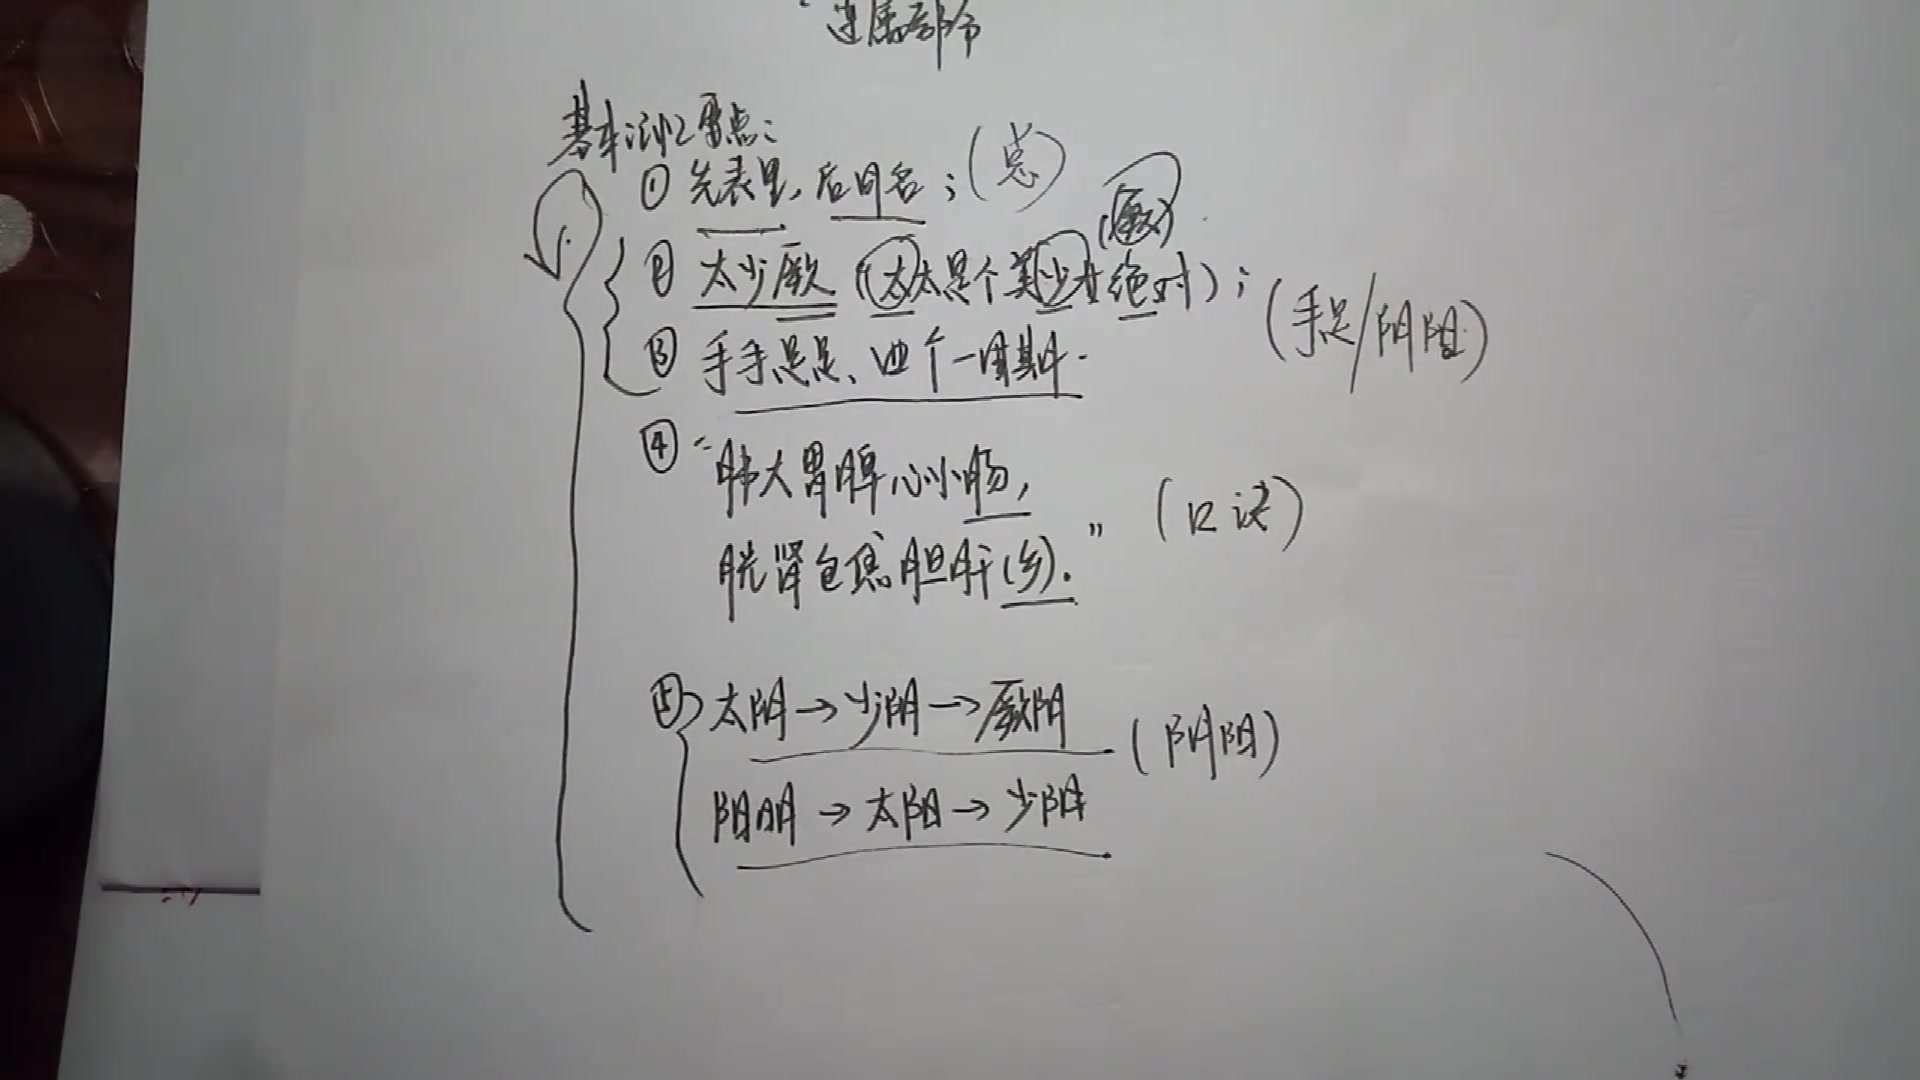 连属部分
基本记忆要点：
① 先表里，后同名；（总）
（厥）
② 太少厥（太太是个美少女绝对）；
③ 手手足足、四个一周期.
（手足/阴阳）
④ “肺大胃脾心小肠，
胱肾包焦胆肝(乡).” （口诀）
⑤ 太阴→少阴→厥阴
（阴阳）
阳明→太阳→少阳